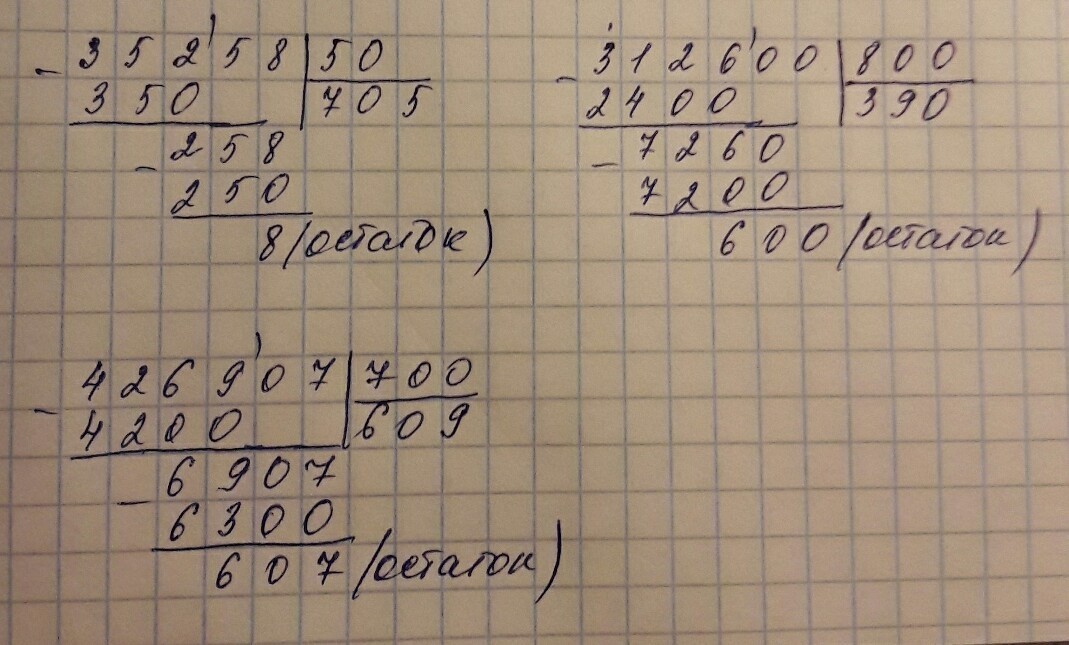 35258 50
- 350 705
- 258
250
8 (остаток)
312600 800
- 2400 390
- 7260
7200
600 (остаток)
426907 700
- 4200 609
- 6907
6300
607 (остаток)